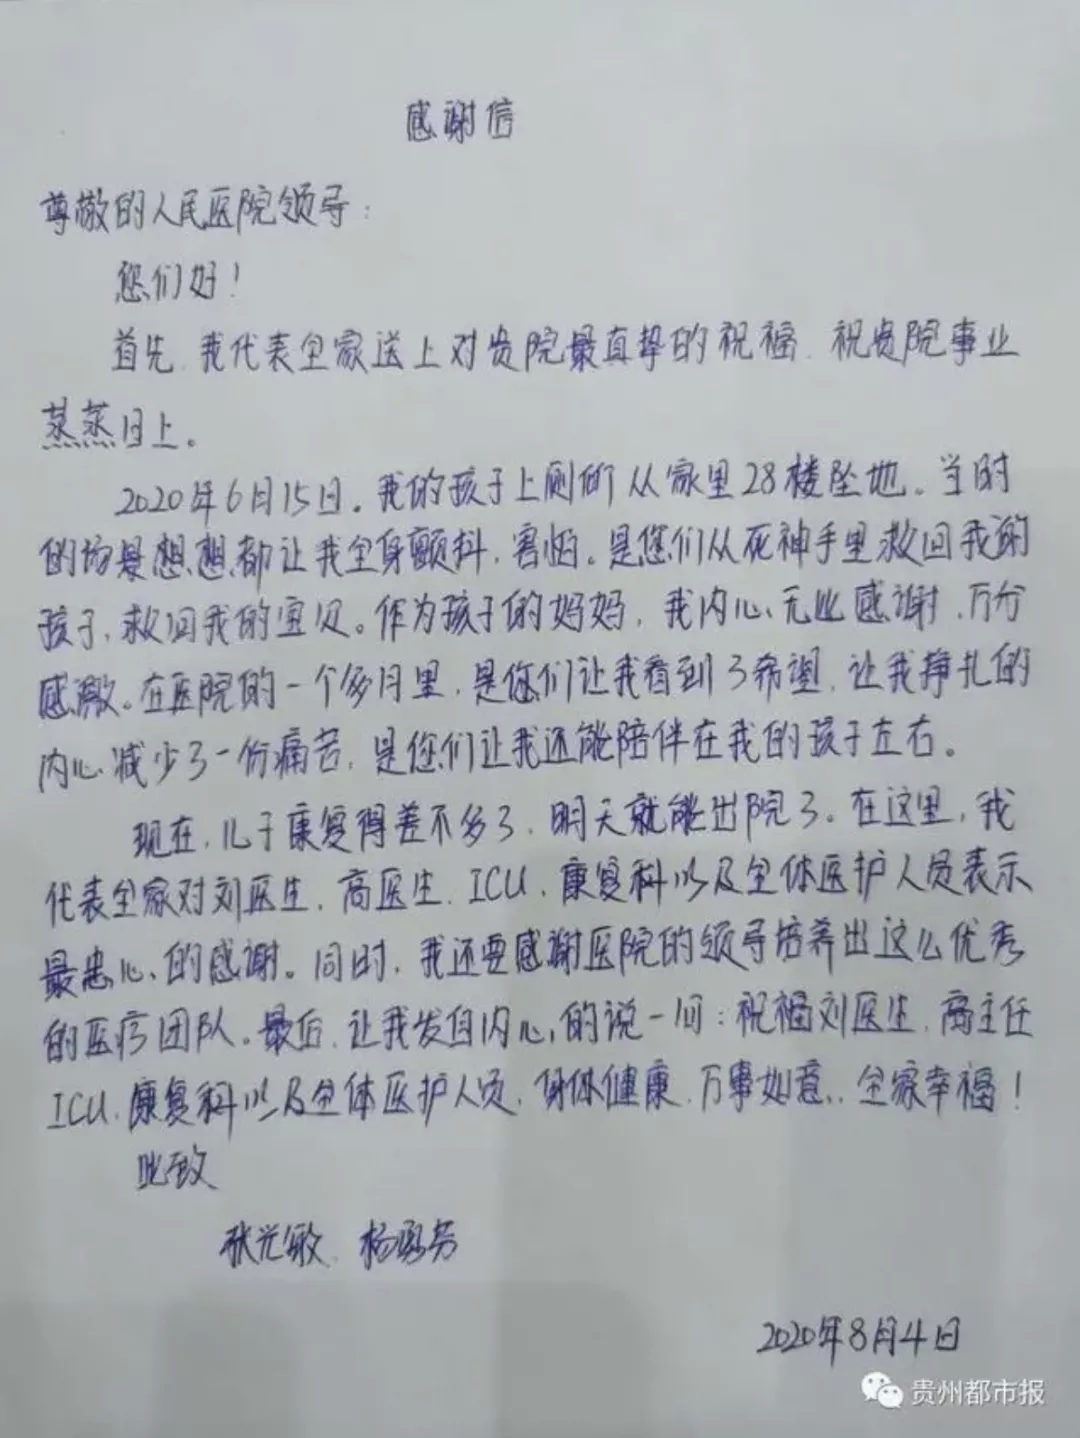 感谢信
尊敬的人民医院领导：
您们好！
首先，我代表全家送上对贵院最真挚的祝福，祝贵院事业
蒸蒸日上。
2020年6月15日。我的孩子上厕所从家里28楼坠地。当时
的场景想想都让我全身颤抖，害怕。是您们从死神手里救回我的
孩子，救回我的宝贝。作为孩子的妈妈，我内心无比感谢，万分
感激。在医院的一个多月里，是您们让我看到了希望，让我挣扎的
内心减少了一份痛苦，是您们让我还能陪伴在我的孩子左右。
现在，儿子康复得差不多了，明天就能出院了。在这里，我
代表全家对刘医生，高医生，ICU，康复科以及全体医护人员表示
最忠心的感谢。同时，我还要感谢医院的领导培养出这么优秀
的医疗团队。最后，让我发自内心的说一句：祝福刘医生，高主任
ICU，康复科以及全体医护人员，身体健康，万事如意，全家幸福！
此致
张光敏 杨芬
2020年8月4日
贵州都市报